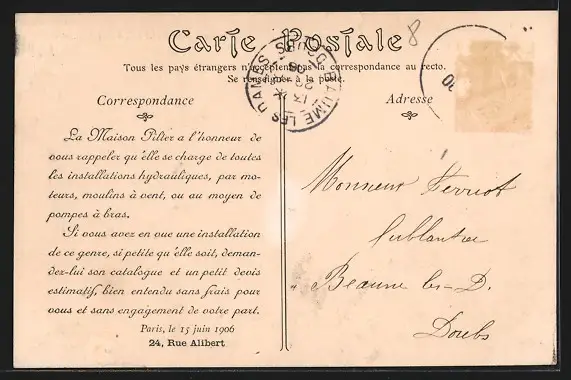 8
Carte Postale
Tous les pays étrangers n'acceptent pas la correspondance au recto.
Se renseigner à la poste.
BAUME LES DAMES
Correspondance
Adresse
La Maison Pilter a l'honneur de
vous rappeler qu'elle se charge de toutes
les installations hydrauliques, par mo-
teurs, moulins à vent, ou au moyen de
pompes à bras.
Si vous avez en vue une installation
de ce genre, si petite qu'elle soit, deman-
dez-lui son catalogue et un petit devis
estimatif, bien entendu sans frais pour
vous et sans engagement de votre part.
Paris, le 15 juin 1906
24, Rue Alibert
Monsieur Ferriot
Beaume les-D.
Doubs